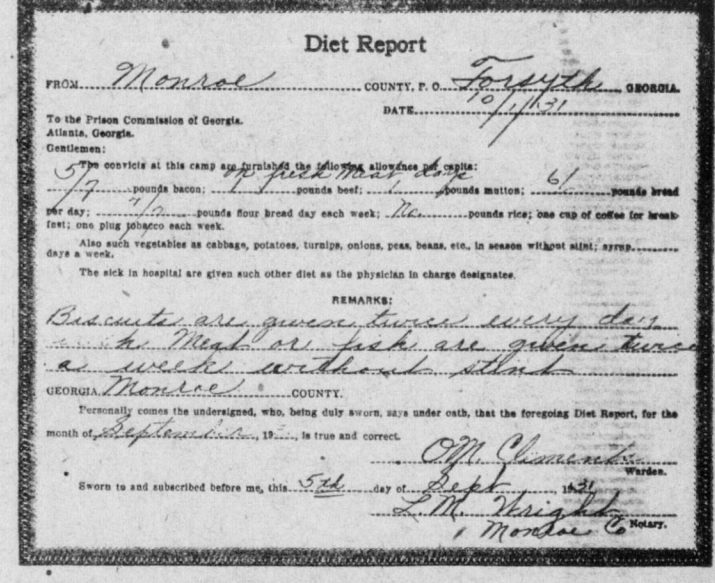 Diet Report
FROM Monroe COUNTY, P. O. Forsyth, GEORGIA.
DATE 10/1/31
To the Prison Commission of Georgia.
Atlanta, Georgia.
Gentlemen:
The convicts at this camp are furnished the following allowance per capita:
5/7 pounds bacon; on fresh meat days pounds beef; pounds mutton; pounds bread
per day; pounds flour bread day each week; No pounds rice; one cup of coffee for break-
fast; one plug tobacco each week.
Also such vegetables as cabbage, potatoes, turnips, onions, peas, beans, etc., in season without stint; syrup
days a week.
The sick in hospital are given such other diet as the physician in charge designates.
REMARKS:
Biscuits are given twice every day
Meat or fish are given twice
a week without stint
GEORGIA, Monroe COUNTY.
Personally comes the undersigned, who, being duly sworn, says under oath, that the foregoing Diet Report, for the
month of September, 19, is true and correct.
O.M. Clements
Warden.
Sworn to and subscribed before me, this 5th day of Sept, 1931
L.M. Wright
Notary.
Monroe Co